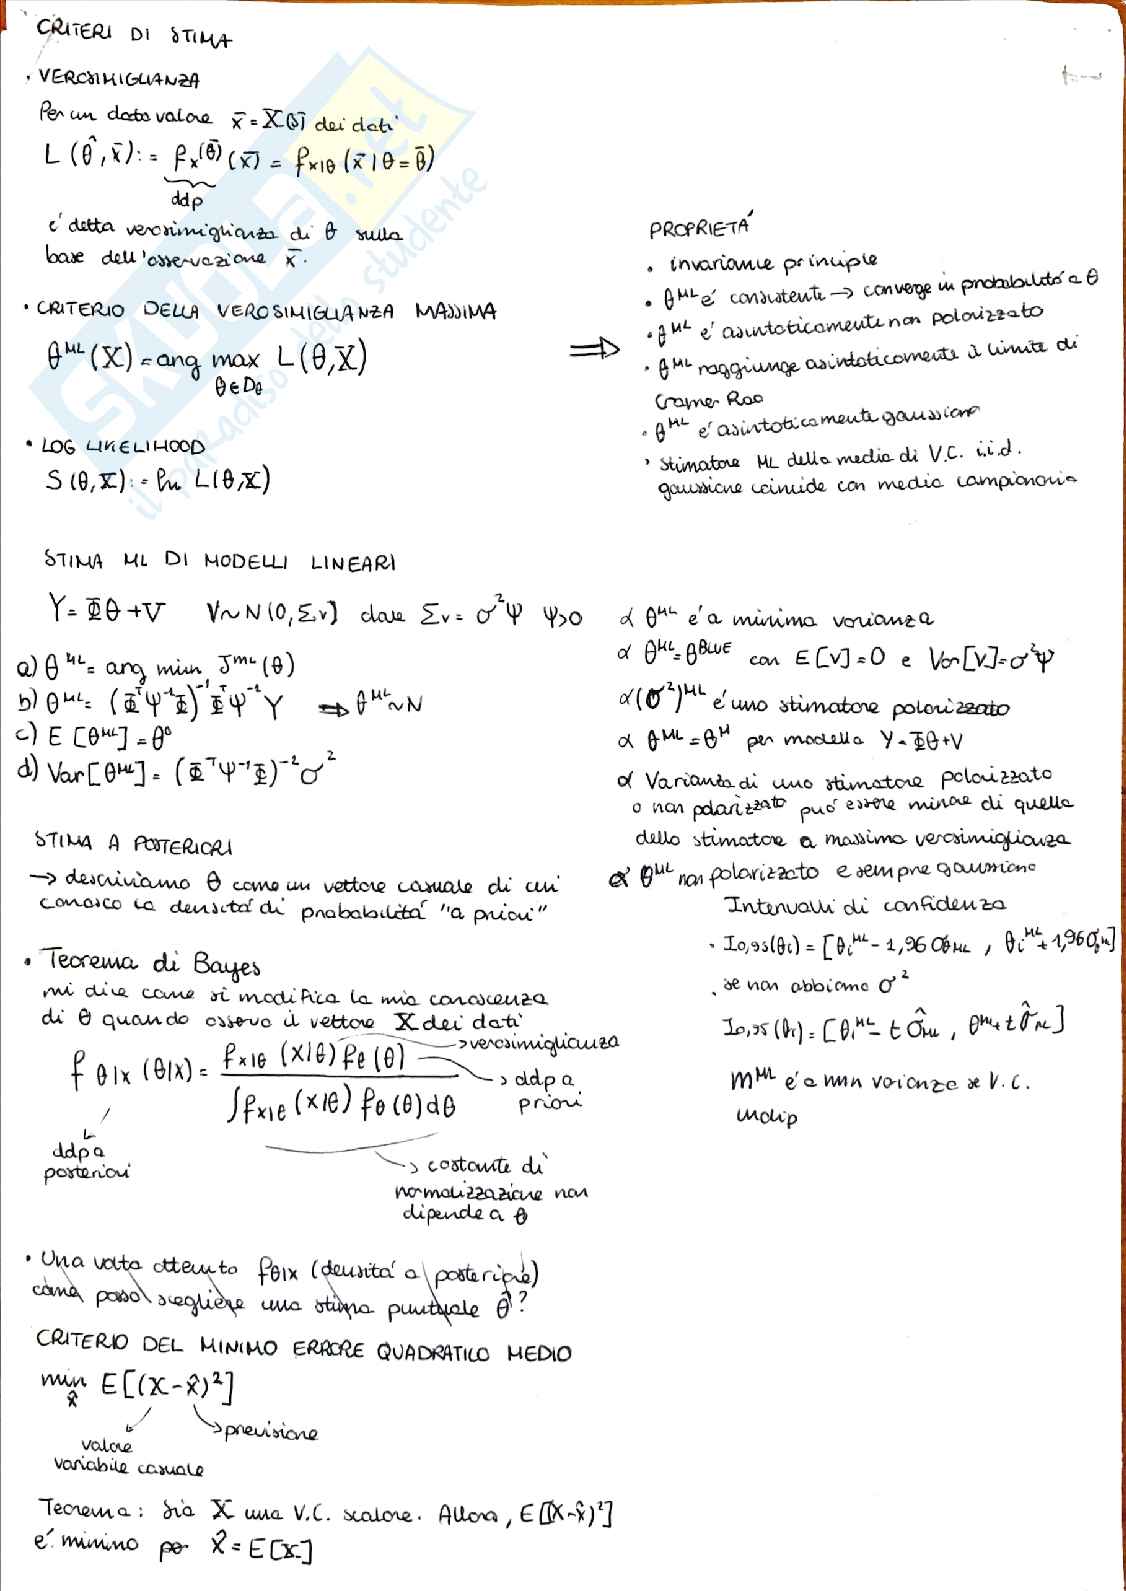 CRITERI DI STIMA
• VEROSIMIGLIANZA
Per un dato valore x̄ = X(s̄) dei dati
L(θ̂, x̄) := f_x^(θ̄)(x̄) = f_x|θ (x̄ | θ = θ̄)
ddp
e' detta verosimiglianza di θ sulla
base dell'osservazione x̄.
• CRITERIO DELLA VEROSIMIGLIANZA MASSIMA
θ^ML (X) = arg max L(θ, X)
θ ∈ Dθ
• LOG LIKELIHOOD
S(θ, X) := ln L(θ, X)
⇒
PROPRIETA'
• invariance principle
• θ^ML e' consistente → converge in probabilità a θ
• θ^ML e' asintoticamente non polarizzato
• θ^ML raggiunge asintoticamente il limite di
Cramer Rao
• θ^ML e' asintoticamente gaussiano
• Stimatore ML della media di V.C. i.i.d.
gaussiane coincide con media campionaria
STIMA ML DI MODELLI LINEARI
Y = Φθ + V V ~ N(0, Σv) dove Σv = σ²Ψ Ψ>0
a) θ^ML = arg min J^ML (θ)
b) θ^ML = (Φ^T Ψ^-1 Φ)^-1 Φ^T Ψ^-1 Y ⇒ θ^ML ~ N
c) E [θ^ML] = θ°
d) Var [θ^ML] = (Φ^T Ψ^-1 Φ)^-2 σ²
α θ^ML e' a minima varianza
α θ^ML = θ^BLUE con E[V] = 0 e Var[V] = σ²Ψ
α (σ²)^ML e' uno stimatore polarizzato
α θ^ML = θ^M per modello Y = Φθ + V
α Varianza di uno stimatore polarizzato
o non polarizzato può essere minore di quella
dello stimatore a massima verosimiglianza
α θ^ML non polarizzato e sempre gaussiano
Intervalli di confidenza
• I0,95(θi) = [θi^ML - 1,96 σθML , θi^ML + 1,96 σML]
• se non abbiamo σ²
I0,95(θi) = [θi^ML - t σ̂ML , θ^ML + t σ̂ML]
m^ML e' a min varianza se V.C.
indip
STIMA A POSTERIORI
→ descriviamo θ come un vettore casuale di cui
conosco la densità di probabilità "a priori"
• Teorema di Bayes
mi dice come si modifica la mia conoscenza
di θ quando osservo il vettore X dei dati
f θ|x (θ|x) = f x|θ (x|θ) fθ (θ) / ∫ f x|θ (x|θ) fθ (θ) dθ
→ verosimiglianza
→ ddp a
priori
ddp a
posteriori
→ costante di
normalizzazione non
dipende a θ
• Una volta ottenuto fθ|x (densità a posteriori)
come posso scegliere una stima puntuale θ̂?
CRITERIO DEL MINIMO ERRORE QUADRATICO MEDIO
min E[(X - x̂)²]
x̂
→ previsione
valore
variabile casuale
Teorema: Sia X una V.C. scalare. Allora, E[(X - x̂)²]
e' minimo per x̂ = E[X]
SKUOLA.net
il paradiso dello studente